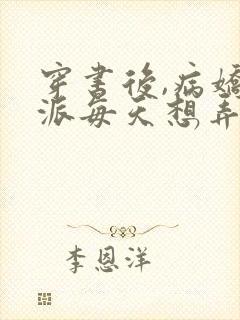 穿書後,病嬌
派每天想弄
李恩洋